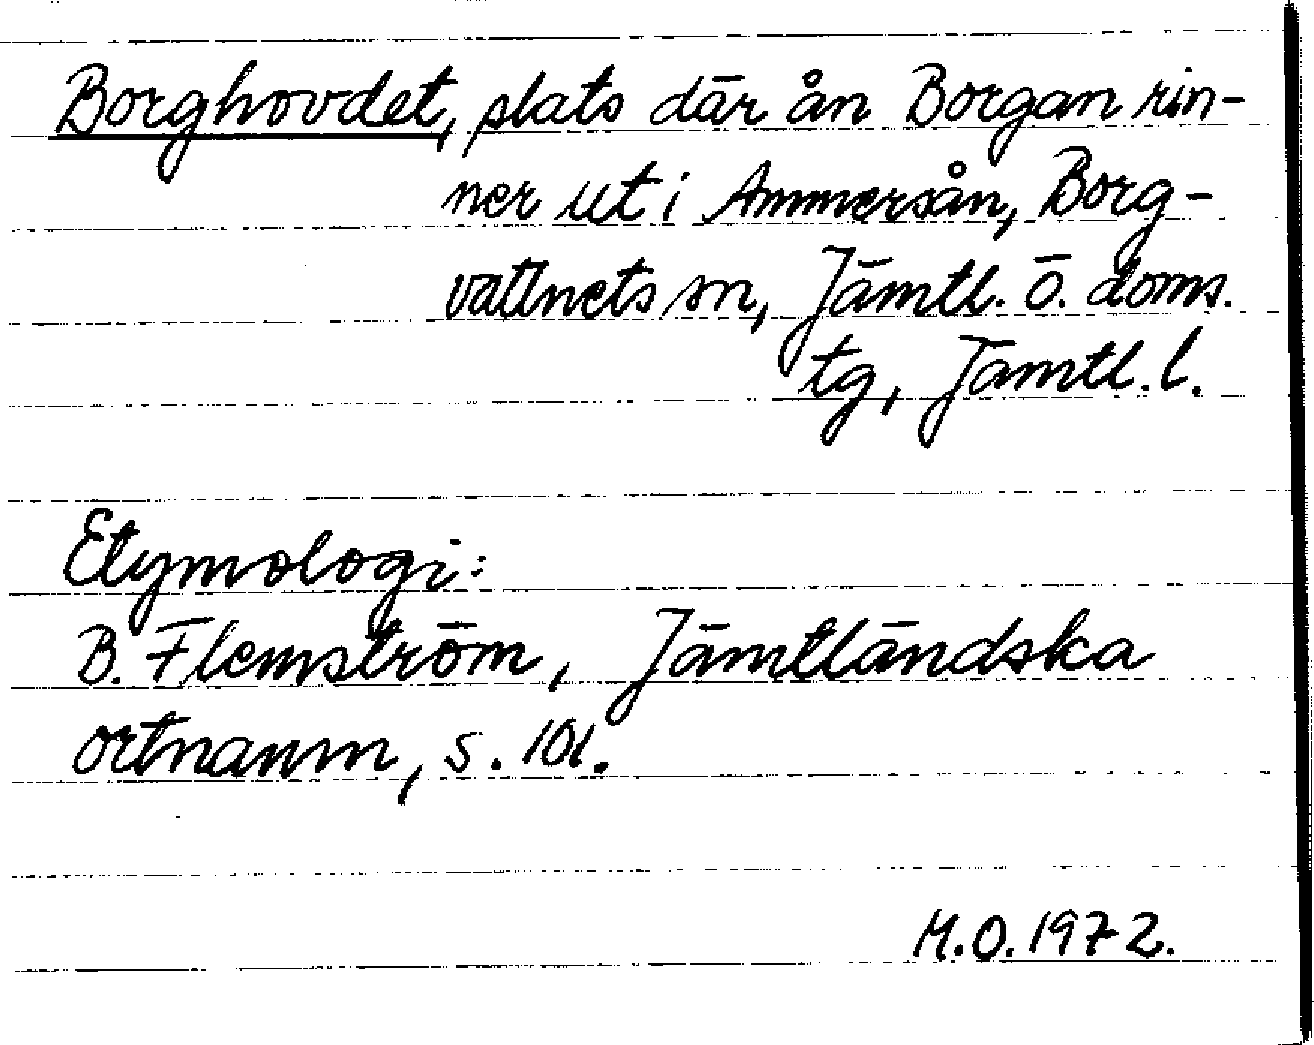 Borghovdet, plats där ån Borgan rin-
ner ut i Ammersån, Borg-
vattnets sn, Jämtl. ö. doms.
tg, Jämtl. l.
Etymologi:
B. Flemström, Jämtländska
ortnamn, s. 101.
M.O. 1972.